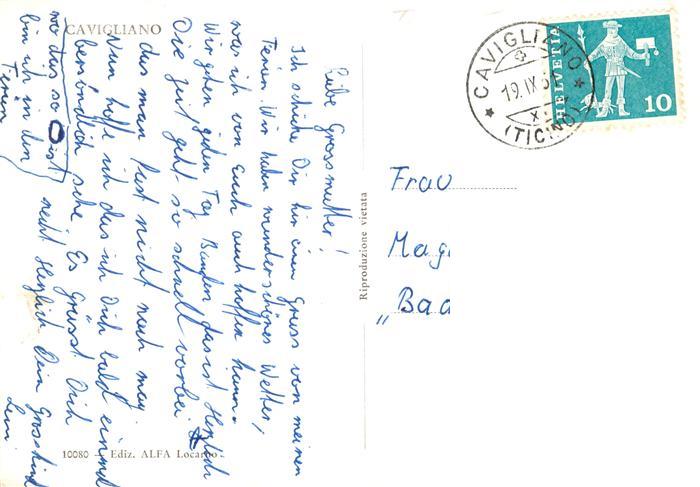 CAVIGLIANO
Liebe Grossmutter!
Ich schicke Dir hir einen Gruss von meinen
Ferien. Wir haben wunderschönes Wetter,
was ich von Euch auch hoffen kann.
Wir gehen jeden Tag Baden das ist Herrlich
Die Zeit geht so schnell vorbei
das man fast nicht nach mag
Nun hoffe ich das ich Dich bald einmal
persönlich sehe. Es Grüsst Dich
recht Herzlich Dein Grosskind
wo dies so ist
bin ich in den
Ferien
10080 - Ediz. ALFA Locarno
Riproduzione vietata
CAVIGLIANO
19.IX.6
(TICINO)
HELVETIA
10
Frau
Mag
„Bad